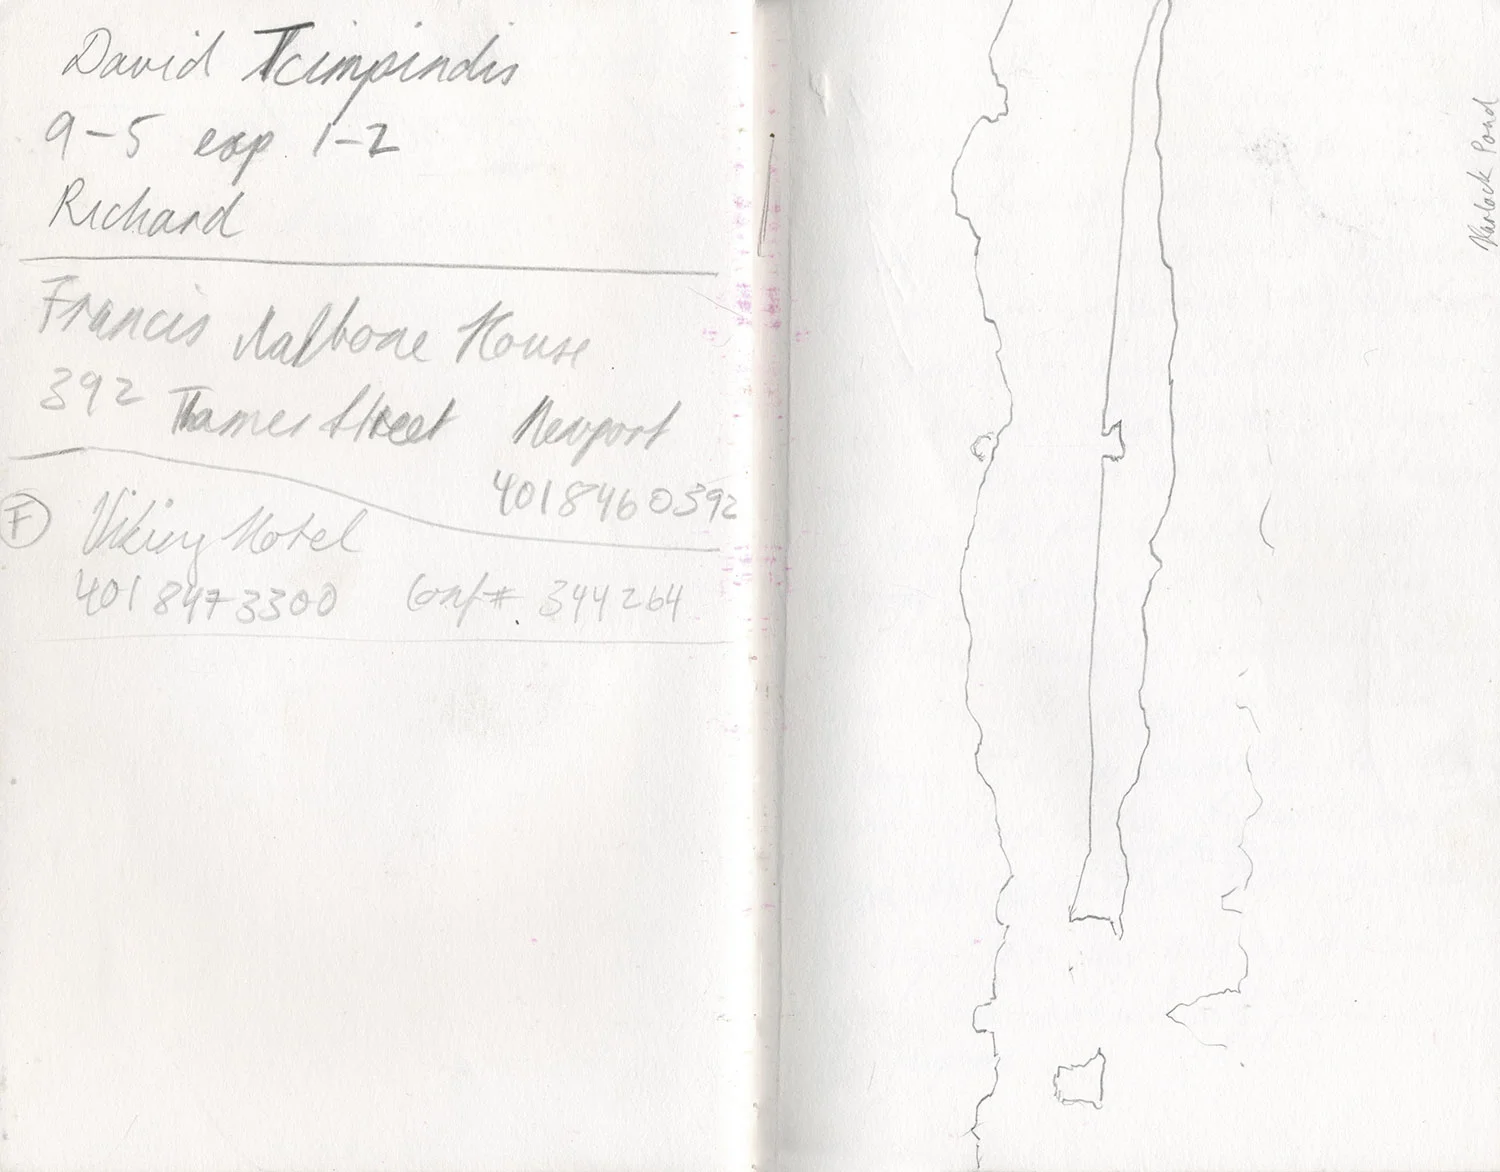 David
9-5 exp 1-2
Richard
Francis Malbone House
392 Thames Street Newport
4018460392
F
Viking Hotel
401 847 3300 Conf# 344264
Pond